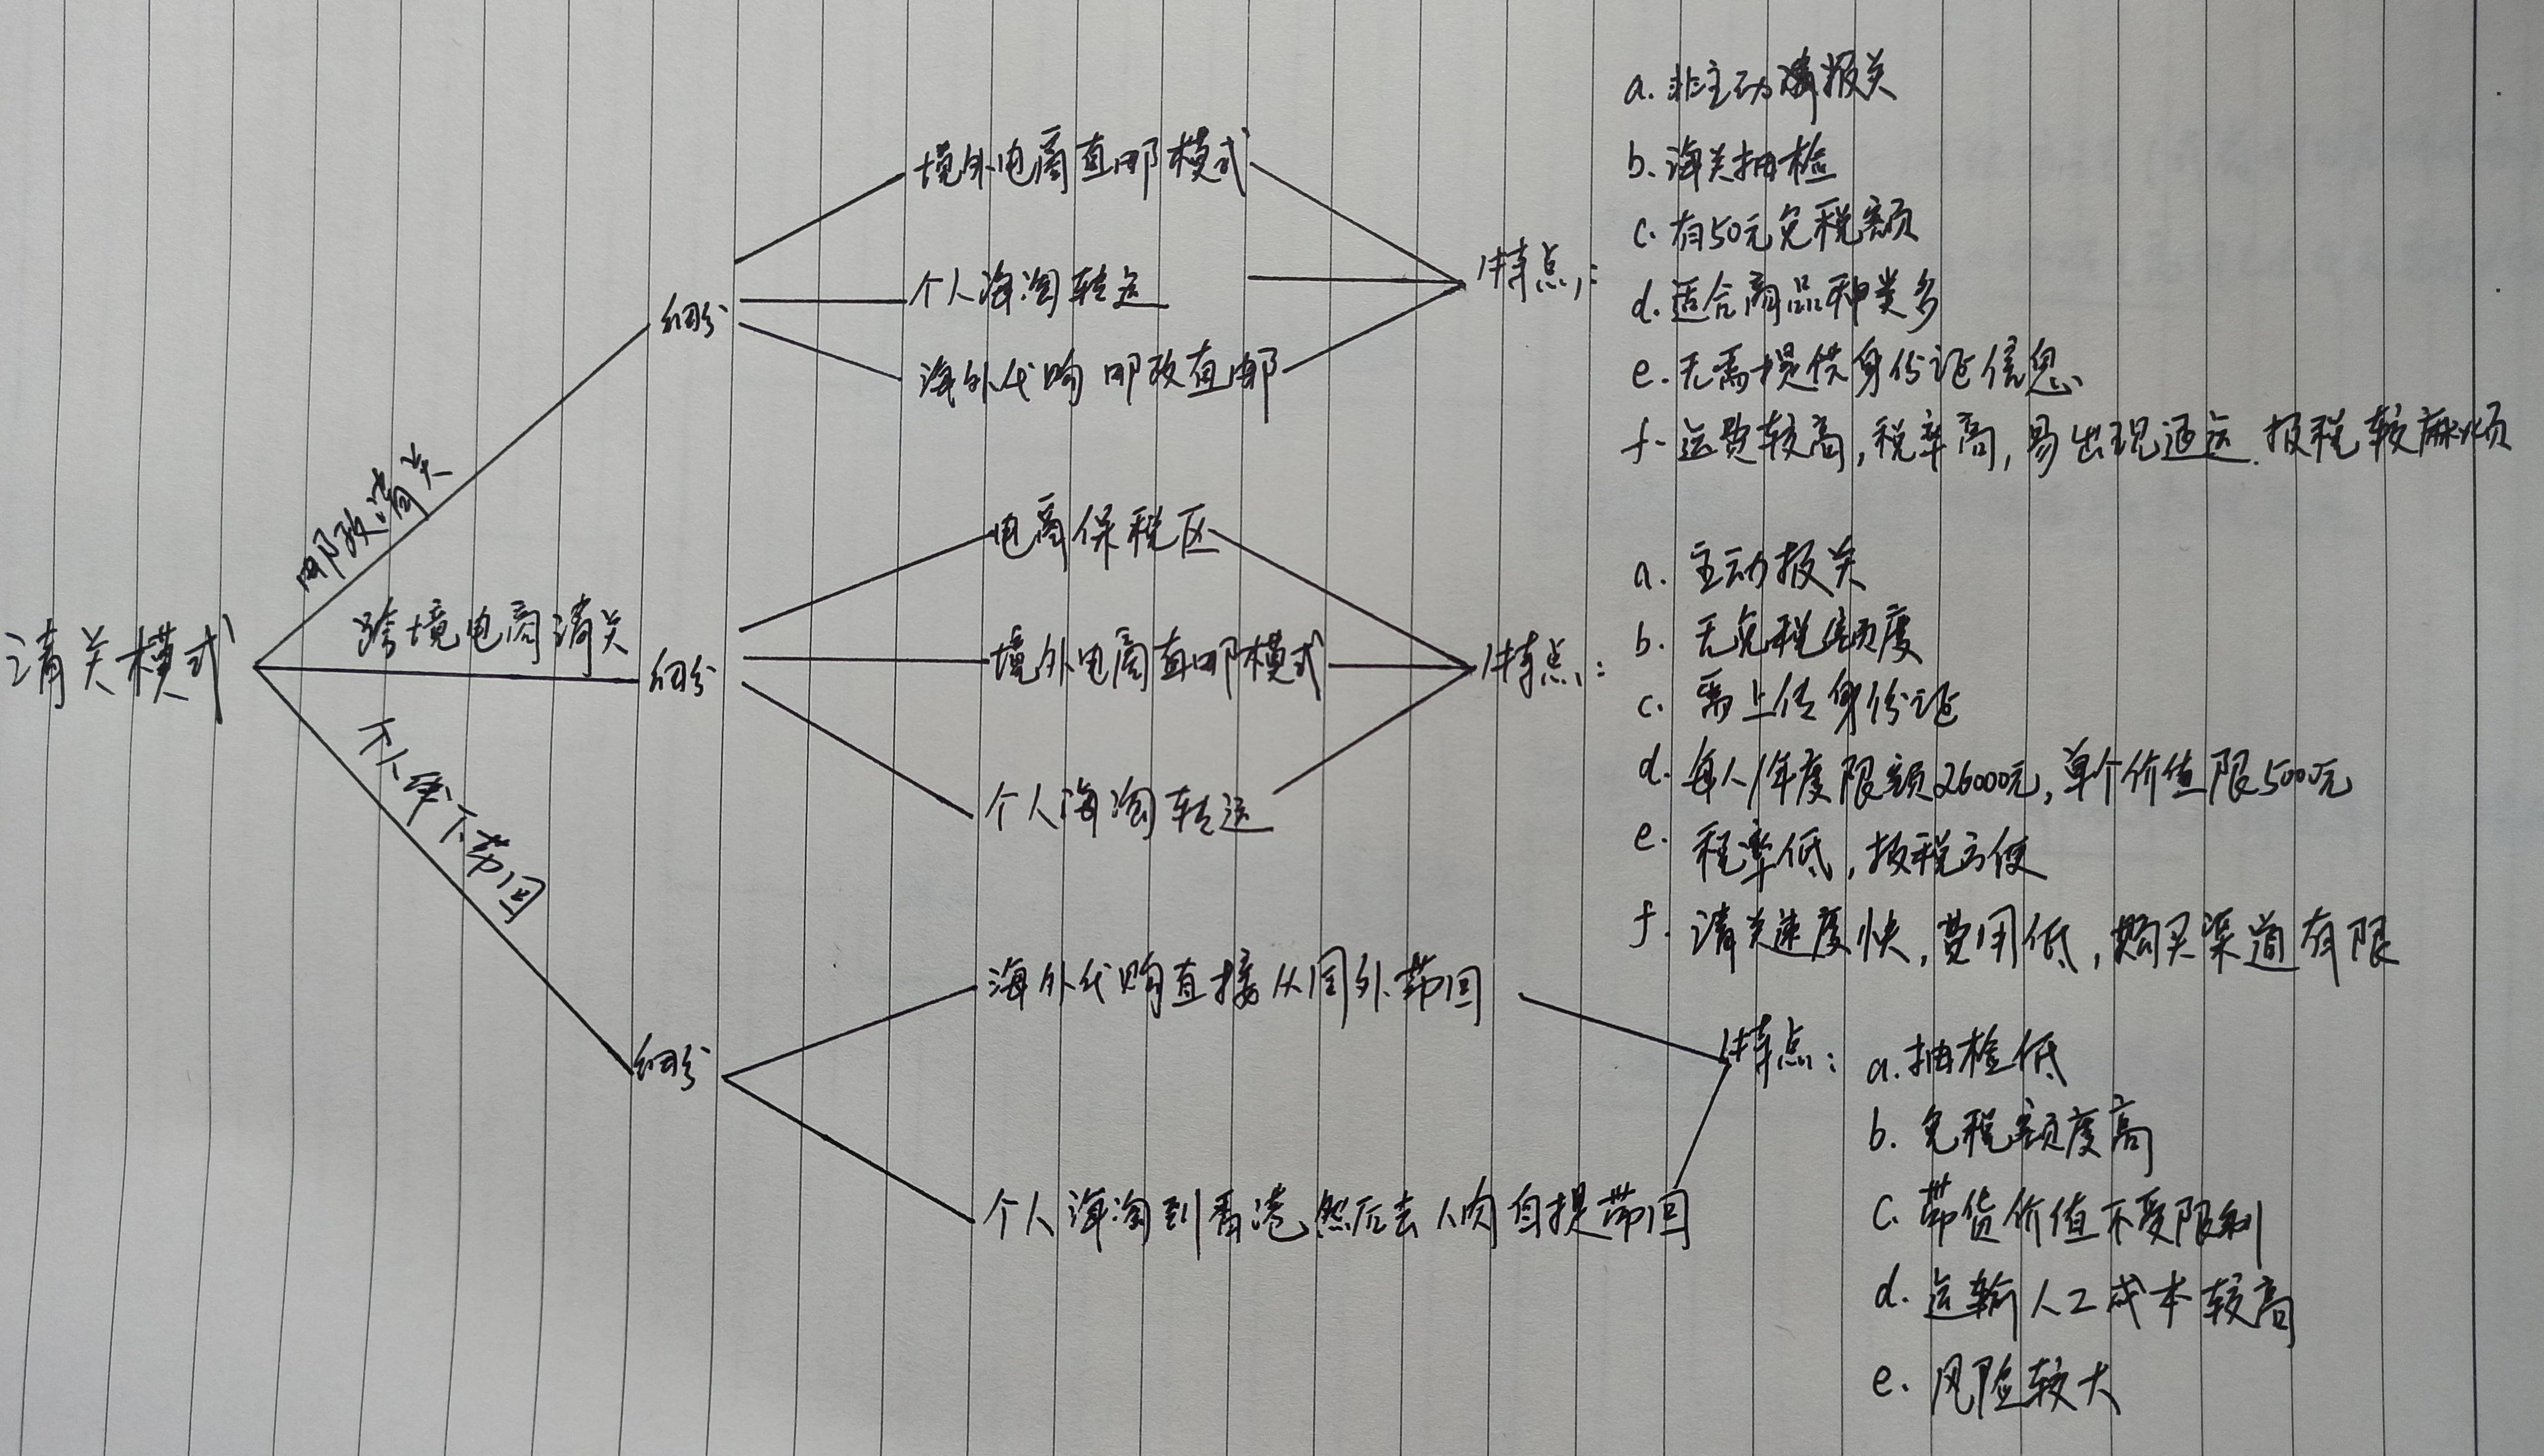 清关模式
邮政清关
细分
境外电商直邮模式
个人海淘转运
海外代购 邮政直邮
特点:
a. 非主动报关
b. 海关抽检
c. 有50元免税额
d. 适合商品种类多
e. 无需提供身份证信息
f. 运费较高,税率高,易出现退运.报税较麻烦
跨境电商清关
细分
电商保税区
境外电商直邮模式
个人海淘转运
特点:
a. 主动报关
b. 无免税额度
c. 需上传身份证
d. 每人/年度限额26000元,单个价值限5000元
e. 税率低,报税方便
f. 清关速度快,费用低,购买渠道有限
个人带回
细分
海外代购直接从国外带回
个人海淘到香港,然后去人肉自提带回
特点:
a. 抽检低
b. 免税额度高
c. 带货价值不受限制
d. 运输人工成本较高
e. 风险较大